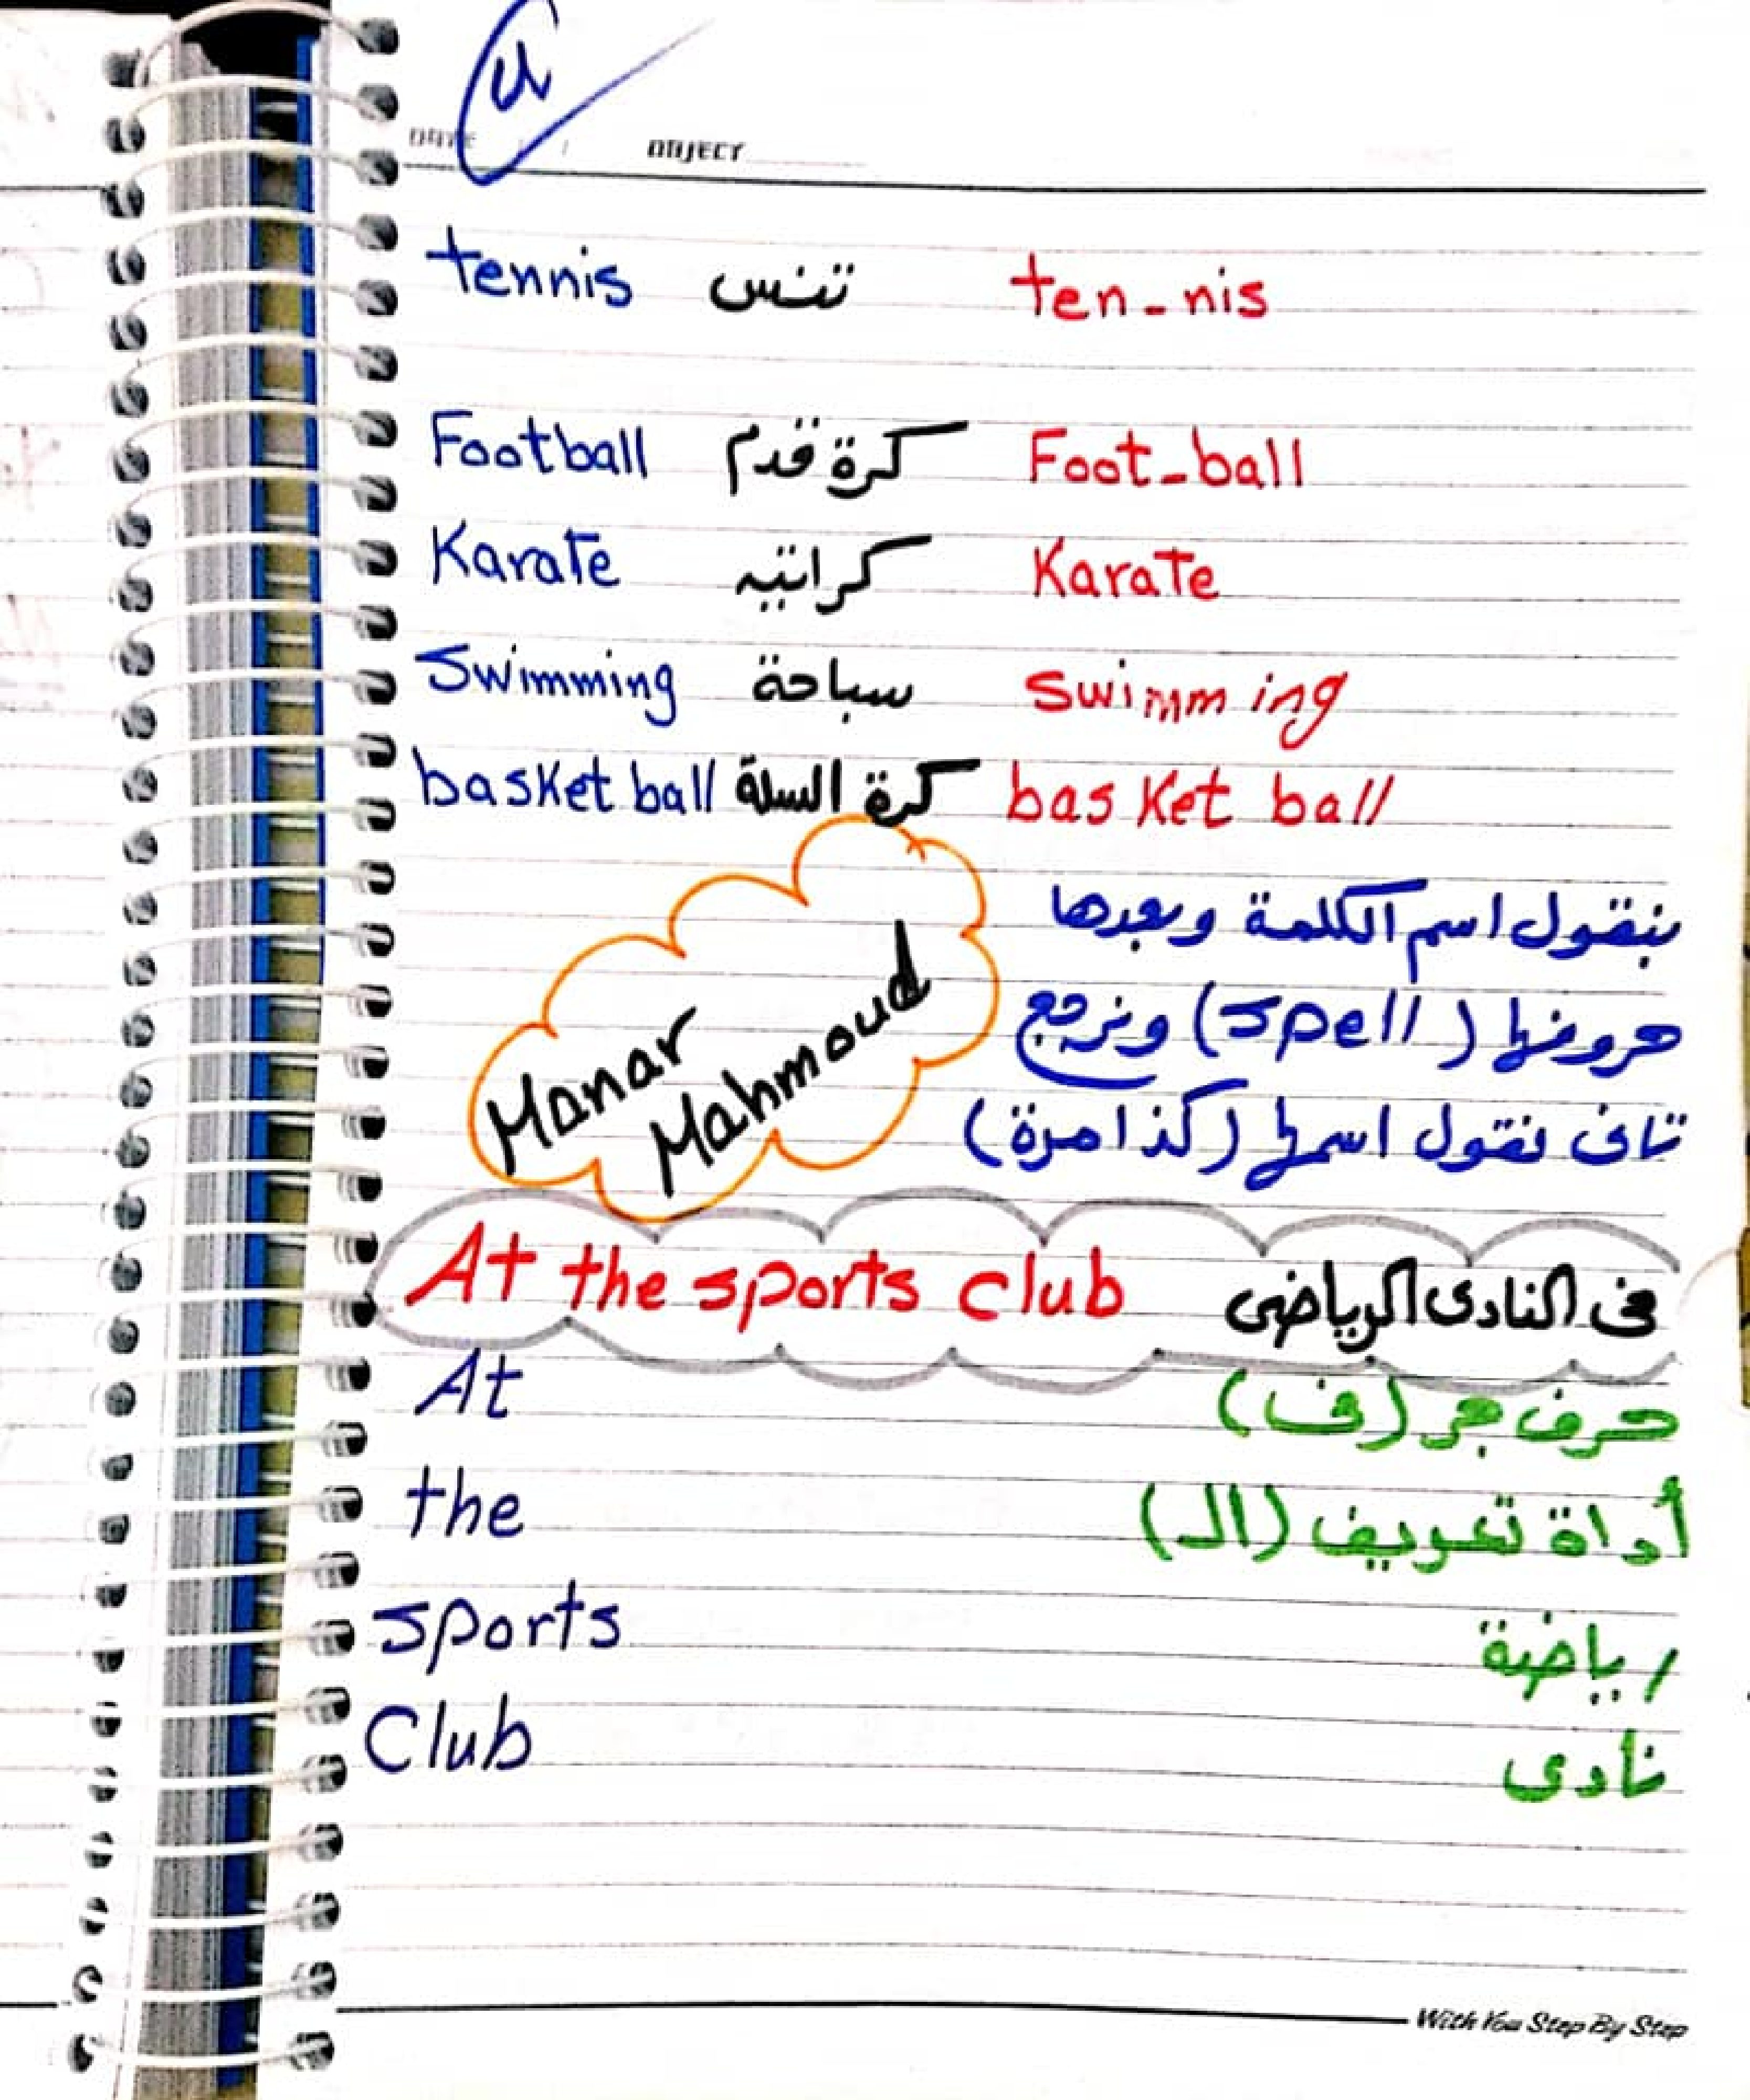 DATE / / OBJECT
tennis تنس ten-nis
Football كرة قدم Foot-ball
Karate كراتيه Karate
Swimming سباحة Swimm ing
basket ball كرة السلة bas ket ball
بنقول اسم الكلمة وبعدها
حروفها (spell) ونرجع
تانى نقول اسمها (كذا مرة)
Manar
Mahmoud
At the sports club فى النادى الرياضى
At حرف جر (فى)
the أداة تعريف (الـ)
sports رياضة
Club نادى
With You Step By Step